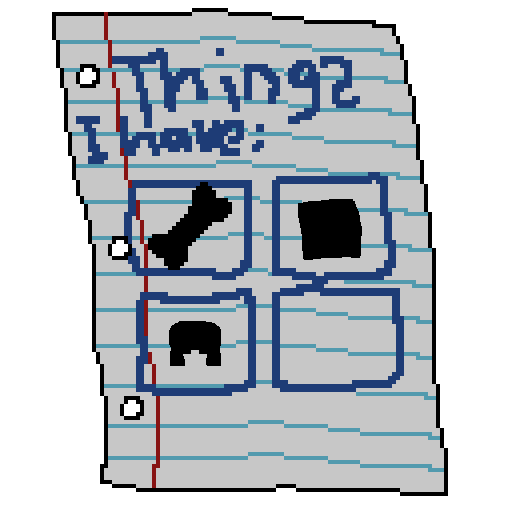 Things
I have: